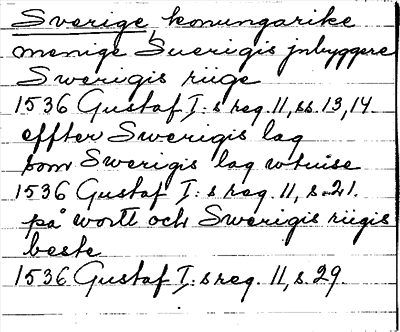 Sverige, konungarike
menige Suerigis jnbyggere
Swerigis riige
1536 Gustaf I:s reg. 11, ss. 13, 14.
effter Swerigis lag
som Swerigis lag wtuise
1536 Gustaf I:s reg. 11, s. 21.
på wortt och Swerigis riigis
beste
1536 Gustaf I:s reg. 11, s. 29.